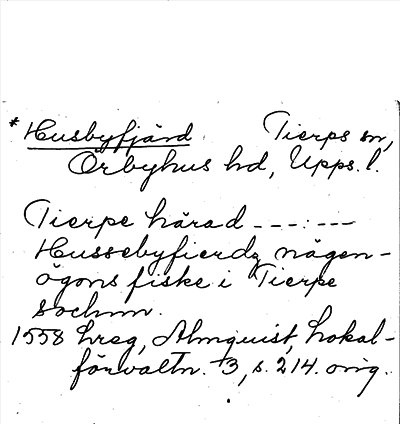 *Husbyfjärd Tierps sn,
Örbyhus hd, Upps. l.
Tierpe härad ---:---
Hussebyfierdz någen-
ögons fiske i Tierpe
sochnn.
1558 hreg, Almquist, Lokal-
förvaltn. 3, s. 214. orig.